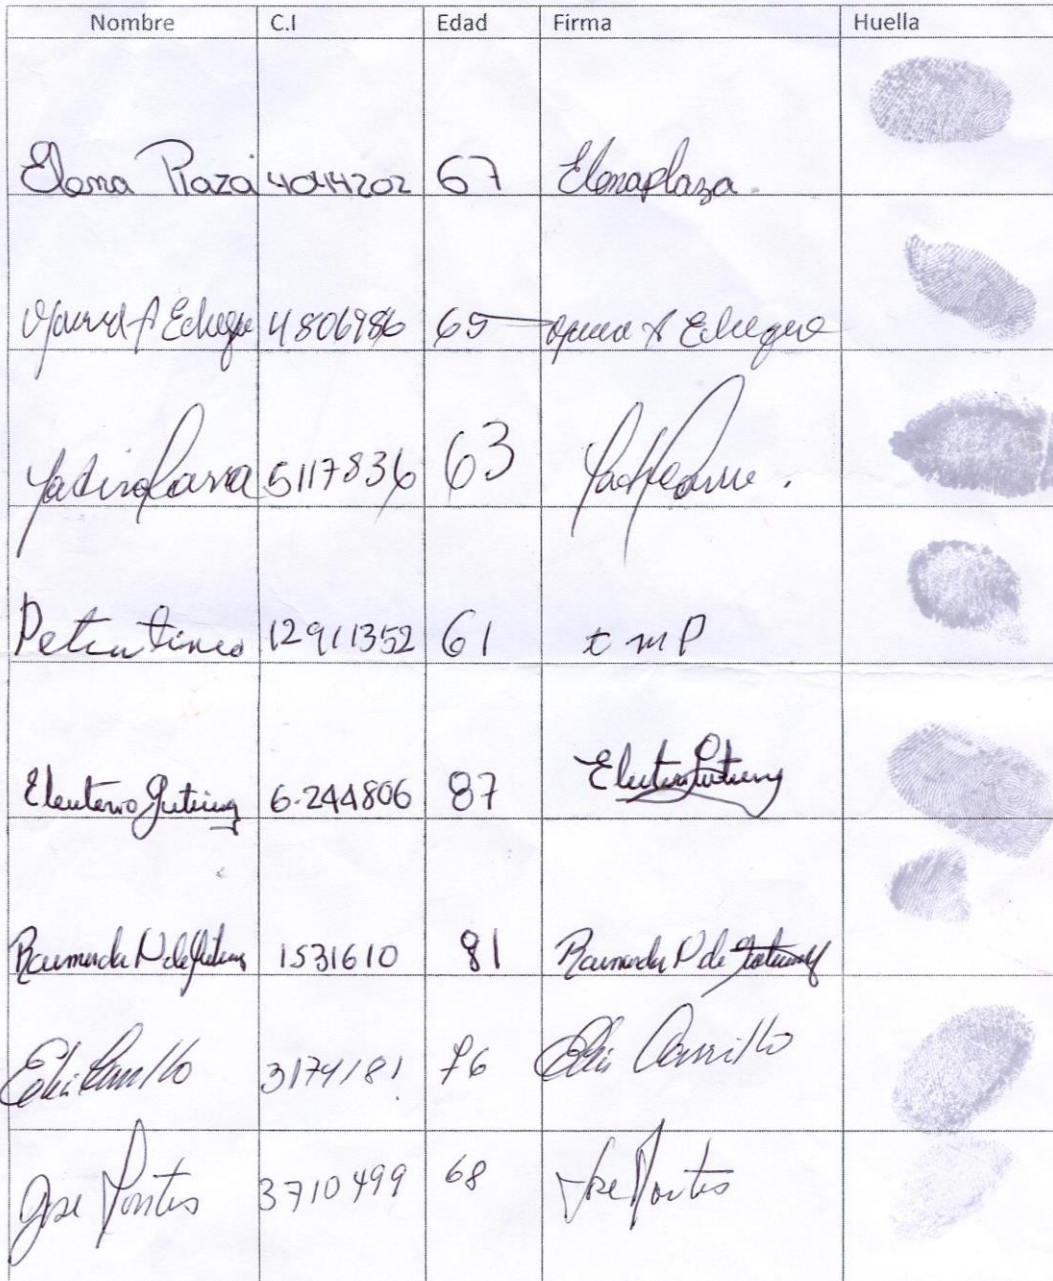 Nombre C.I Edad Firma Huella
Elena Plaza 4044202 67 Elena plaza
A Echegue 4806986 65 A Echegue
5117836 63
Petra tineo 12911352 61 t m P
Eleuterio Gutierrez 6.244806 87 Eleuterio Gutierrez
Raimunda N de Gutierrez 1531610 81 Raimunda N de Gutierrez
Carrillo 3174181 76 Carrillo
Jose Montes 3710499 68 Jose Montes